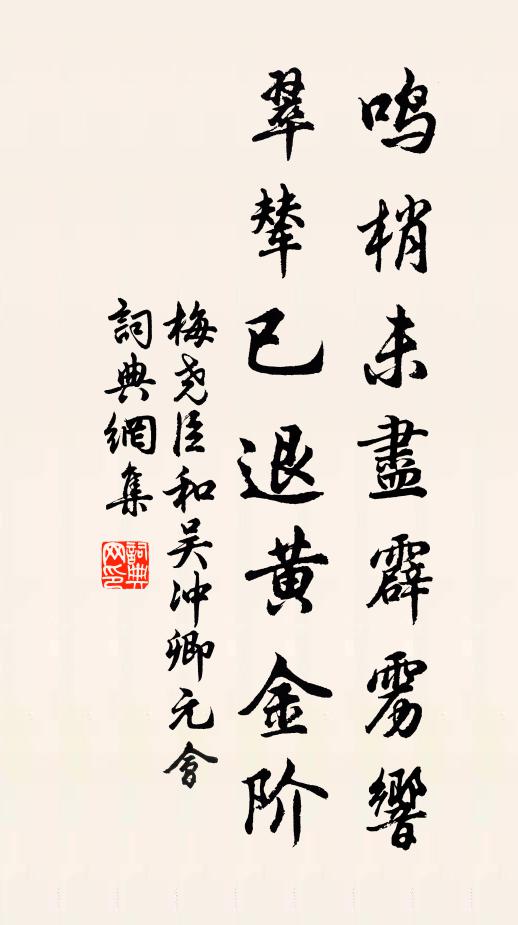 鸣梢未盡霹雳響
翠辇已退黄金阶
梅尧臣和吴冲卿元會
詞典網集
詞典
网印